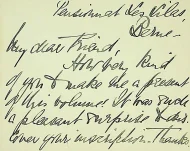 Pension at Les Lilas
Berne -
My dear Friend,
How very kind
of you to make me a present
of this volume! It was such
a pleasant surprise to dis-
cover your inscription. Thanks